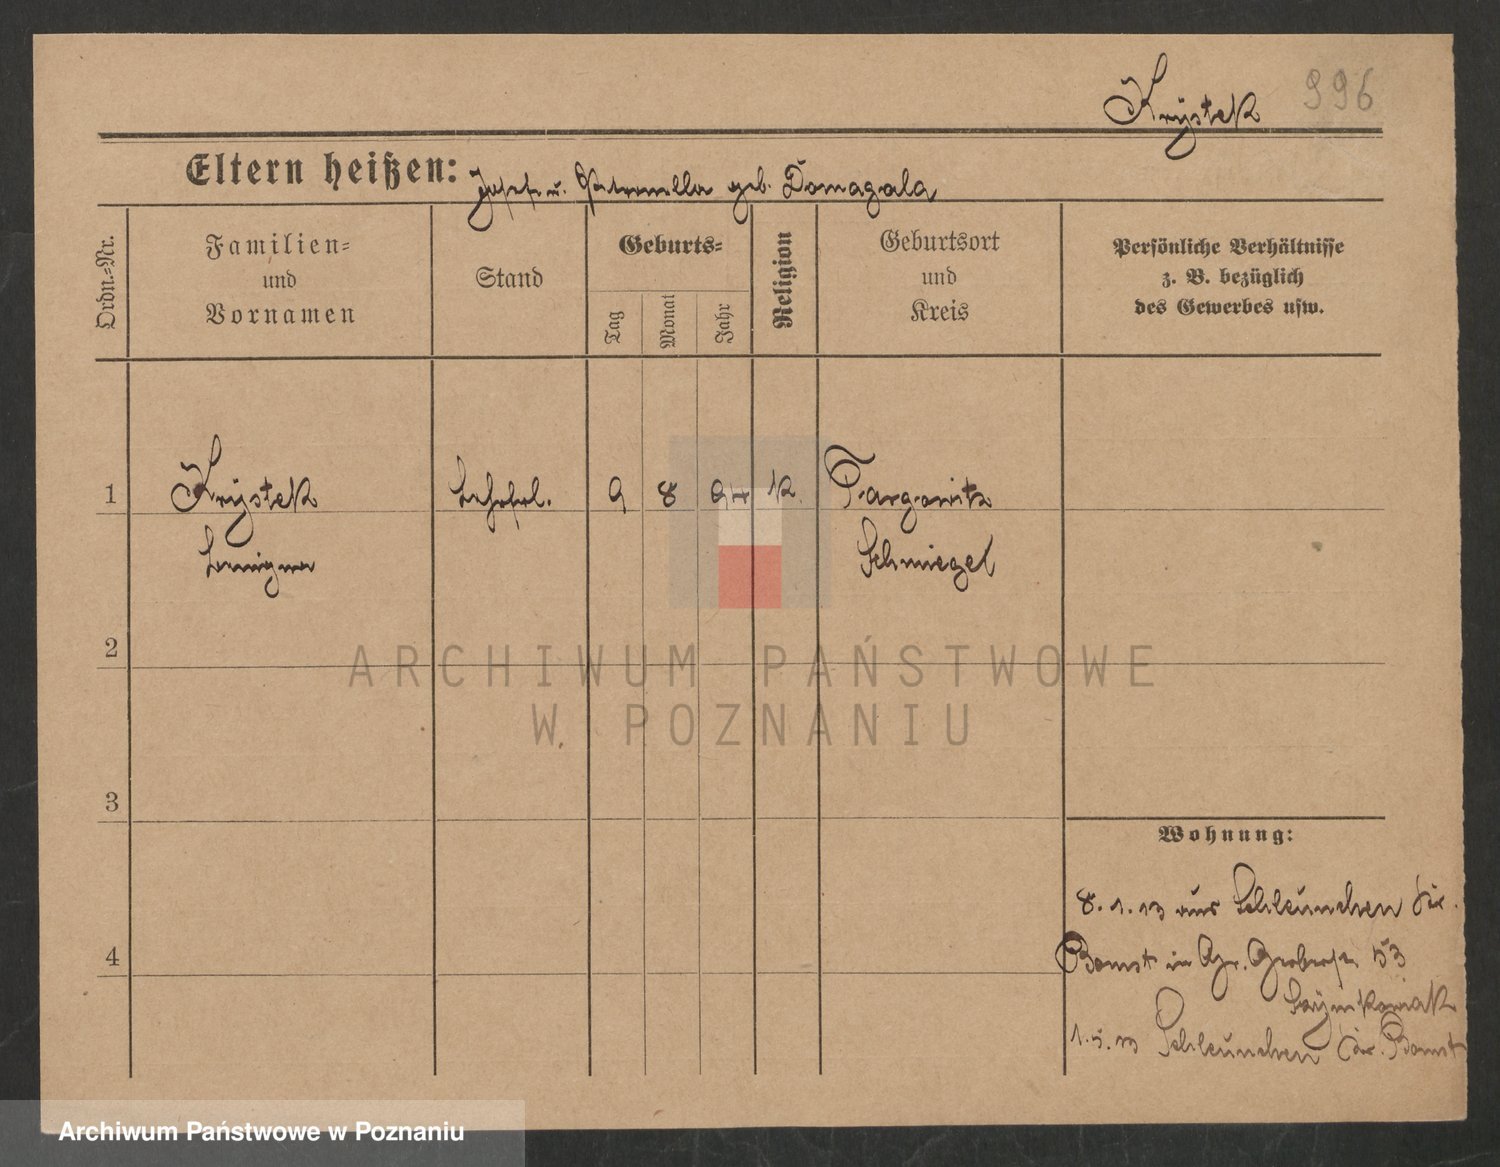 Krystek 996
Eltern heißen: Josef u. Petronella geb. Domagala
Ordn.=Nr.
Familien=
und
Vornamen
Stand
Geburts=
Tag
Monat
Jahr
Religion
Geburtsort
und
Kreis
Persönliche Verhältnisse
z. B. bezüglich
des Gewerbes usw.
1 Krystek Lehrfrl. 9 8 94 k. Targowitz
Schmiegel
2
ARCHIWUM PAŃSTWOWE
W POZNANIU
3
Wohnung:
8.1.13 aus Schleunchen Kr.
4
Bomst in Gr. Gerberstr. 53
1.5.13 Schleunchen Kr. Bomst
Archiwum Państwowe w Poznaniu